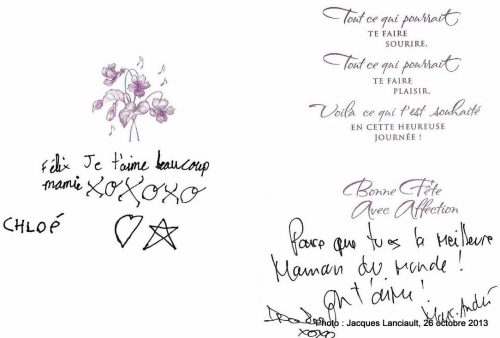 Félix Je t'aime beaucoup
mamie XOXOXO
CHLOÉ
Tout ce qui pourrait
TE FAIRE
SOURIRE.
Tout ce qui pourrait
TE FAIRE
PLAISIR.
Voilà ce qui t'est souhaité
EN CETTE HEUREUSE
JOURNÉE !
Bonne Fête
Avec Affection
Parce que tu es la meilleure
Maman du monde !
On t'aime !
Marc-André
xoxo
Photo : Jacques Lanciault, 26 octobre 2013